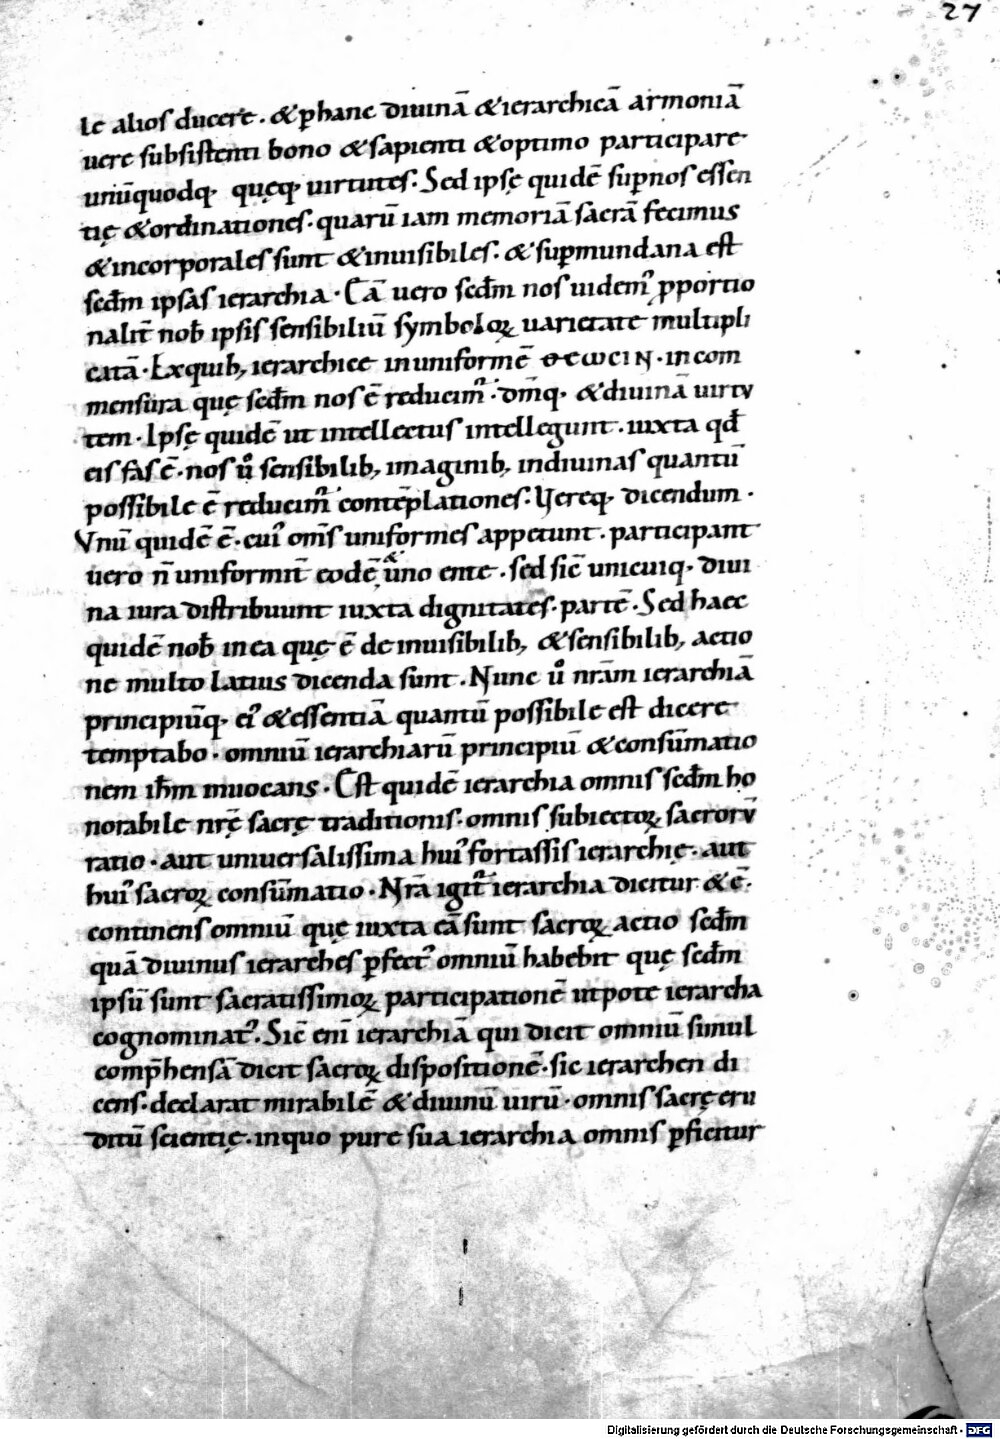 27
le alios ducere. & phanc diuinā & ierarchicā armoniā
uere subsistenti bono & sapienti & optimo participare
unūquodq; quęq; uirtutes. Sed ipsę quidē sup̄nos essen
tię & ordinationes. quarū iam memoriā sacrā fecimus
& incorporales sunt & inuisibiles. & sup̄mundana est
sedm̄ ipsas ierarchia. Eā uero sedm̄ nos uidemꝰ p̄portio
nalit̄ nob̄ ipsis sensibiliū symboloꝝ uarietate multipli
catā. Ex quib; ierarchice in uniformē ΘΕΩCIN. in com
mensura quę sedm̄ nos ē reducimꝰ. dm̄q; & diuinā uirtu
tem. Ipsę quidē ut intellectus intellegunt. iuxta qd̄
eis fas ē. nos u͛o sensibilib; imaginib; in diuinas quantū
possibile ē reducimꝰ contēplationes. Uereq; dicendum.
Vnū quidē ē. cuiꝰ om̄s uniformes appetunt. participant
uero n̄ uniformit̄ eodē & uno ente. sed sic̄ unicuiq; diui
na iura distribuunt iuxta dignitates. partē. Sed haec
quidē nob̄ in ea quę ē de inuisibilib; & sensibilib; actio
ne multo latius dicenda sunt. Nunc u͛o nr̄am ierarchiā
principiūq; eiꝰ & essentiā quantū possibile est dicere
temptabo. omniū ierarchiarū principiū & consūmatio
nem ih̄m inuocans. Est quidē ierarchia omnis sedm̄ ho
norabile nr̄ę sacrę traditionis. omnis subiectoꝝ sacrorū
ratio. aut uniuersalissima huiꝰ fortassis ierarchię. aut
huiꝰ sacroꝝ consūmatio. Nr̄a igit̄ ierarchia dicitur & ē.
continens omniū quę iuxta eā sunt sacroꝝ actio sedm̄
quā diuinus ierarches p̄fectꝰ omniū habebit quę sedm̄
ipsū sunt sacratissimoꝝ participationē utpote ierarcha
cognominatꝰ. Sic̄ eni̅ ierarchiā qui dicit omniū simul
comp̄hensā dicit sacroꝝ dispositionē. sic ierarchen di
cens. declarat mirabilē & diuinū uirū. omnis sacrę eru
ditū scientię. in quo pure sua ierarchia omnis p̄ficitur
Digitalisierung gefördert durch die Deutsche Forschungsgemeinschaft - DFG